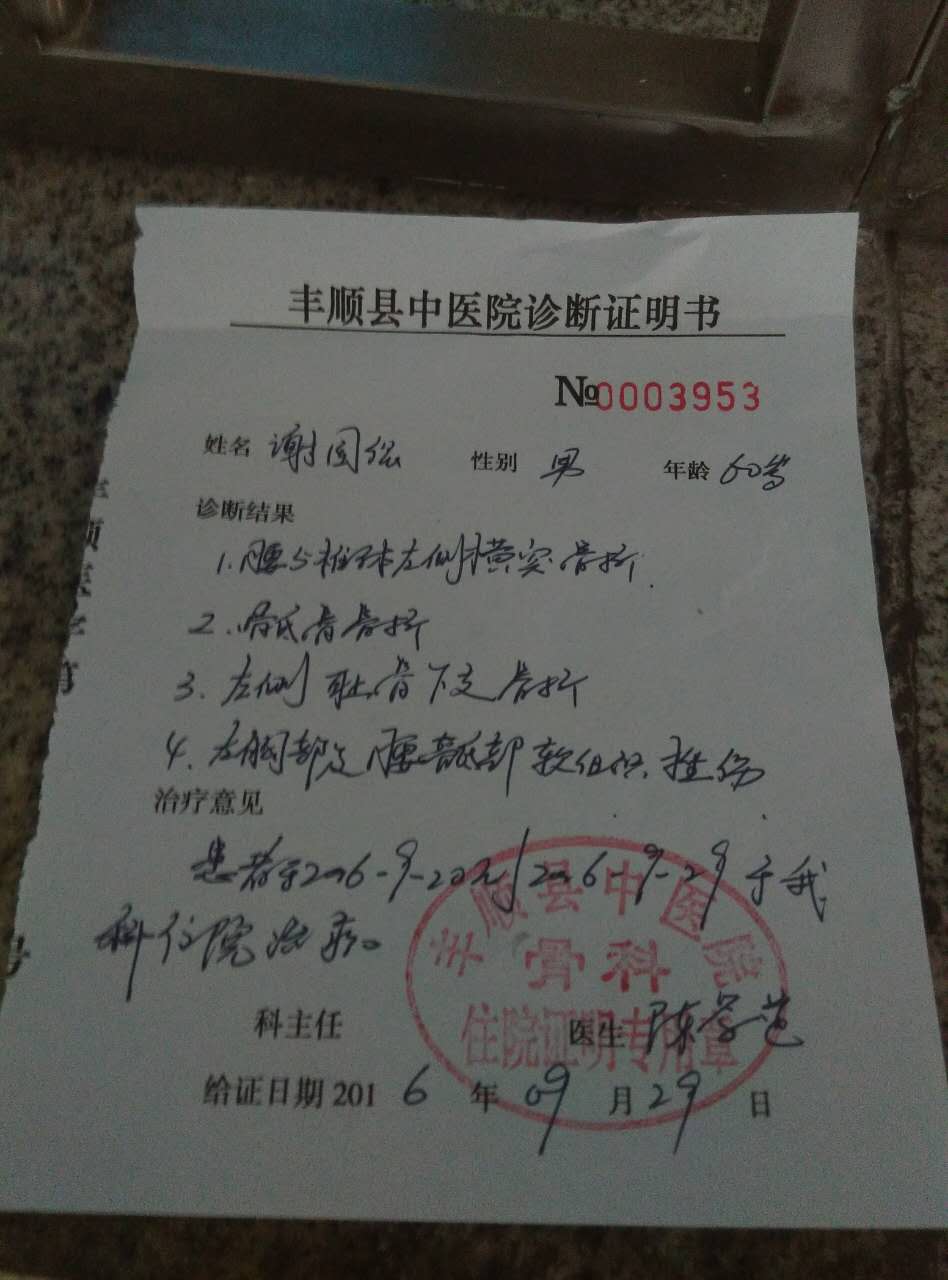 丰顺县中医院诊断证明书
№0003953
姓名 谢国 性别 男 年龄 60岁
诊断结果
1.腰5椎体左侧横突骨折.
2.骶骨骨折
3.左侧耻骨下支骨折
4.左胸部及腰骶部软组织挫伤
治疗意见
患者于2016-9-20至2016-9-29于我
科住院治疗。
丰顺县中医院
骨科
住院证明专用章
科主任 医生 陈学
给证日期 2016年09月29日